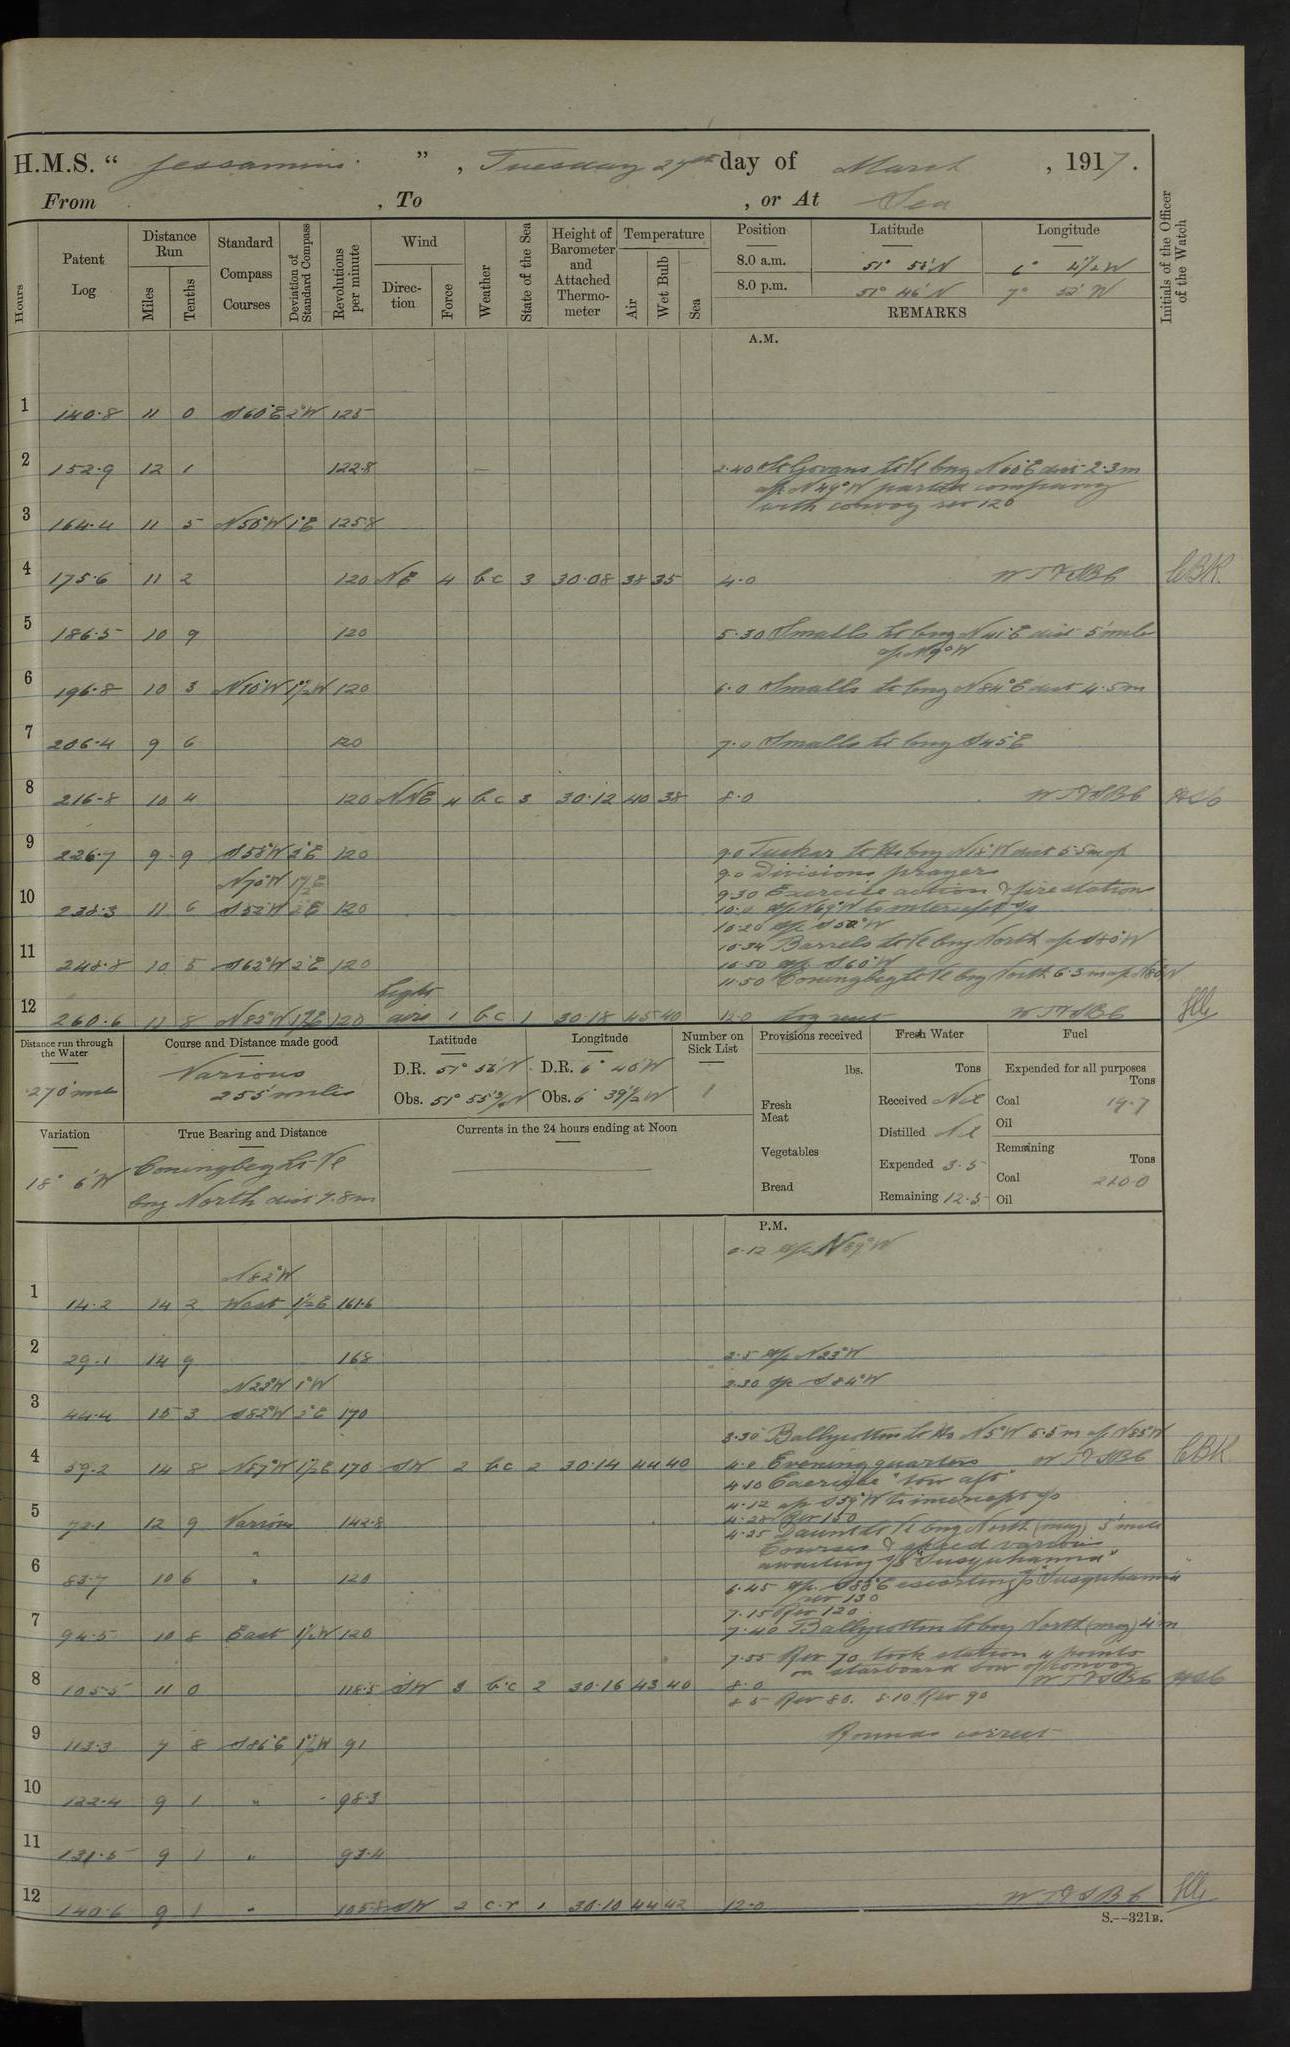 H.M.S. " Jessamine ", Tuesday 27th day of March, 1917.
From , To , or At Sea
Hours
Patent Log
Distance Run
Miles
Tenths
Standard Compass Courses
Deviation of Standard Compass
Revolutions per minute
Wind
Direction
Force
Weather
State of the Sea
Height of Barometer and Attached Thermometer
Temperature
Air
Wet Bulb
Sea
Position
Latitude
Longitude
Initials of the Officer of the Watch
8.0 a.m. 51° 58' N 6° W
8.0 p.m. 51° 46' N 7° 52' W
REMARKS
A.M.
1 140.8 11 0 S60°E 2°W 125
2 152.9 12 1 122.8
2.40 St Govans Lt Vl brng N60°E dist 2.3m
a/c N49°W parted company
with convoy rev 120
3 164.4 11 5 N50°W 1°E 125.8
4 175.6 11 2 120 NE 4 bc 3 30.08 38 35 4.0 CBK.
5 186.5 10 9 120 5.30 Smalls Lt brng N41°E dist 5 mile
a/c N9°W
6 196.8 10 3 N10°W 1½°W 120 6.0 Smalls Lt brng N84°E dist 4.5m
7 206.4 9 6 120 7.0 Smalls Lt brng S45°E
8 216.8 10 4 120 NNE 4 bc 3 30.12 40 38 8.0
9 226.7 9 9 S58°W 2°E 120 9.0 Tuskar Lt Ho brng N18°W dist 5.5m a/c
9.0 Divisions, prayers
N70°W 1½E
9.30 Exercise action & fire station
10 238.3 11 6 S52°W 2°E 120 10.0 a/c N69°W to intercept s/s
10.20 a/c S50°W
10.34 Barrels Lt Vl brng North a/c S80°W
11 248.8 10 5 S62°W 2°E 120
10.50 a/c S60°W
11.50 Coningbeg Lt Vl brng North 6.3m a/c N80°W
12 260.6 11 8 N83°W 1½E 120 light airs 1 bc 1 30.18 45 40 12.0 Log reset
Distance run through the Water
270 mile
Course and Distance made good
Various
255 miles
Latitude
D.R. 51° 56' N
Obs. 51° 55¾' N
Longitude
D.R. 6° 40' W
Obs. 6° 39½' W
Number on Sick List
1
Provisions received
lbs.
Fresh Meat
Vegetables
Bread
Fresh Water
Tons
Received Nil
Distilled Nil
Expended 3.5
Remaining 12.5
Fuel
Expended for all purposes
Tons
Coal 19.7
Oil
Remaining
Tons
Coal 210.0
Oil
Variation
18° 6' W
True Bearing and Distance
Coningbeg Lt Vl
brng North dist 7.8m
Currents in the 24 hours ending at Noon
P.M.
0.12 a/c N89°W
N82°W
1 14.2 14 2 West 1½E 161.6
2 29.1 14 9 168 2.5 a/c N23°W
N23°W 1°W
2.30 a/c S84°W
3 44.4 15 3 S82°W 2°E 170
3.30 Ballycotton Lt Ho N5°W 5.5m a/c N85°W
4 59.2 14 8 N87°W 1½E 170 SW 2 bc 2 30.14 44 40 4.0 Evening quarters CBK
4.10 Exercise "tow aft"
4.12 a/c S39°W to intercept s/s
5 72.1 12 9 Various 142.8 4.28 Rev 150
4.35 Daunt Lt Vl brng North (mag) 3 mile
Courses & speed various
awaiting s/s "Susquhanna"
6 83.7 10 6 " 120
6.45 a/c S88°E escorting s/s "Susquhanna"
rev 130
7.15 Rev 120
7 94.5 10 8 East 1½W 120 7.40 Ballycotton Lt brng North (mag) 4m
7.55 Rev 70 took station 4 points
on starboard bow of convoy
8 105.5 11 0 118.5 SW 3 bc 2 30.16 43 40 8.0
8.5 Rev 80. 8.10 Rev 90
9 113.3 7 8 S86°E 1½W 91 Rounds correct
10 122.4 9 1 " 98.3
11 131.5 9 1 " 93.4
12 140.6 9 1 " 105.8 SW 2 c.r 1 30.10 44 42 12.0
S.--321B.